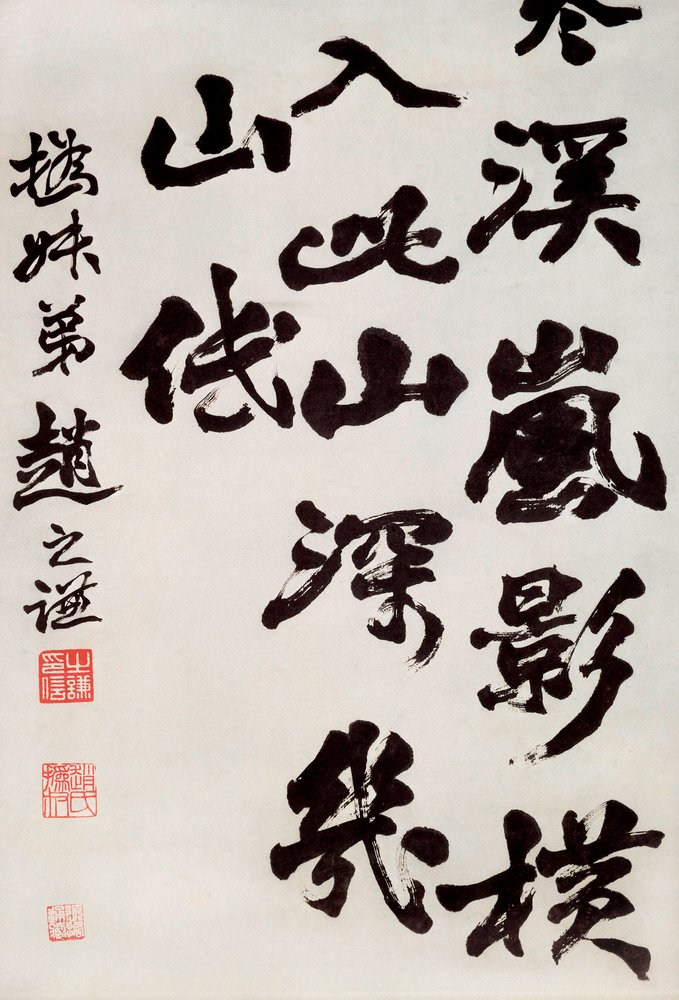 溪嵐影橫
入此山深幾
山
撝叔弟趙之謙
之謙印信
趙氏撝叔